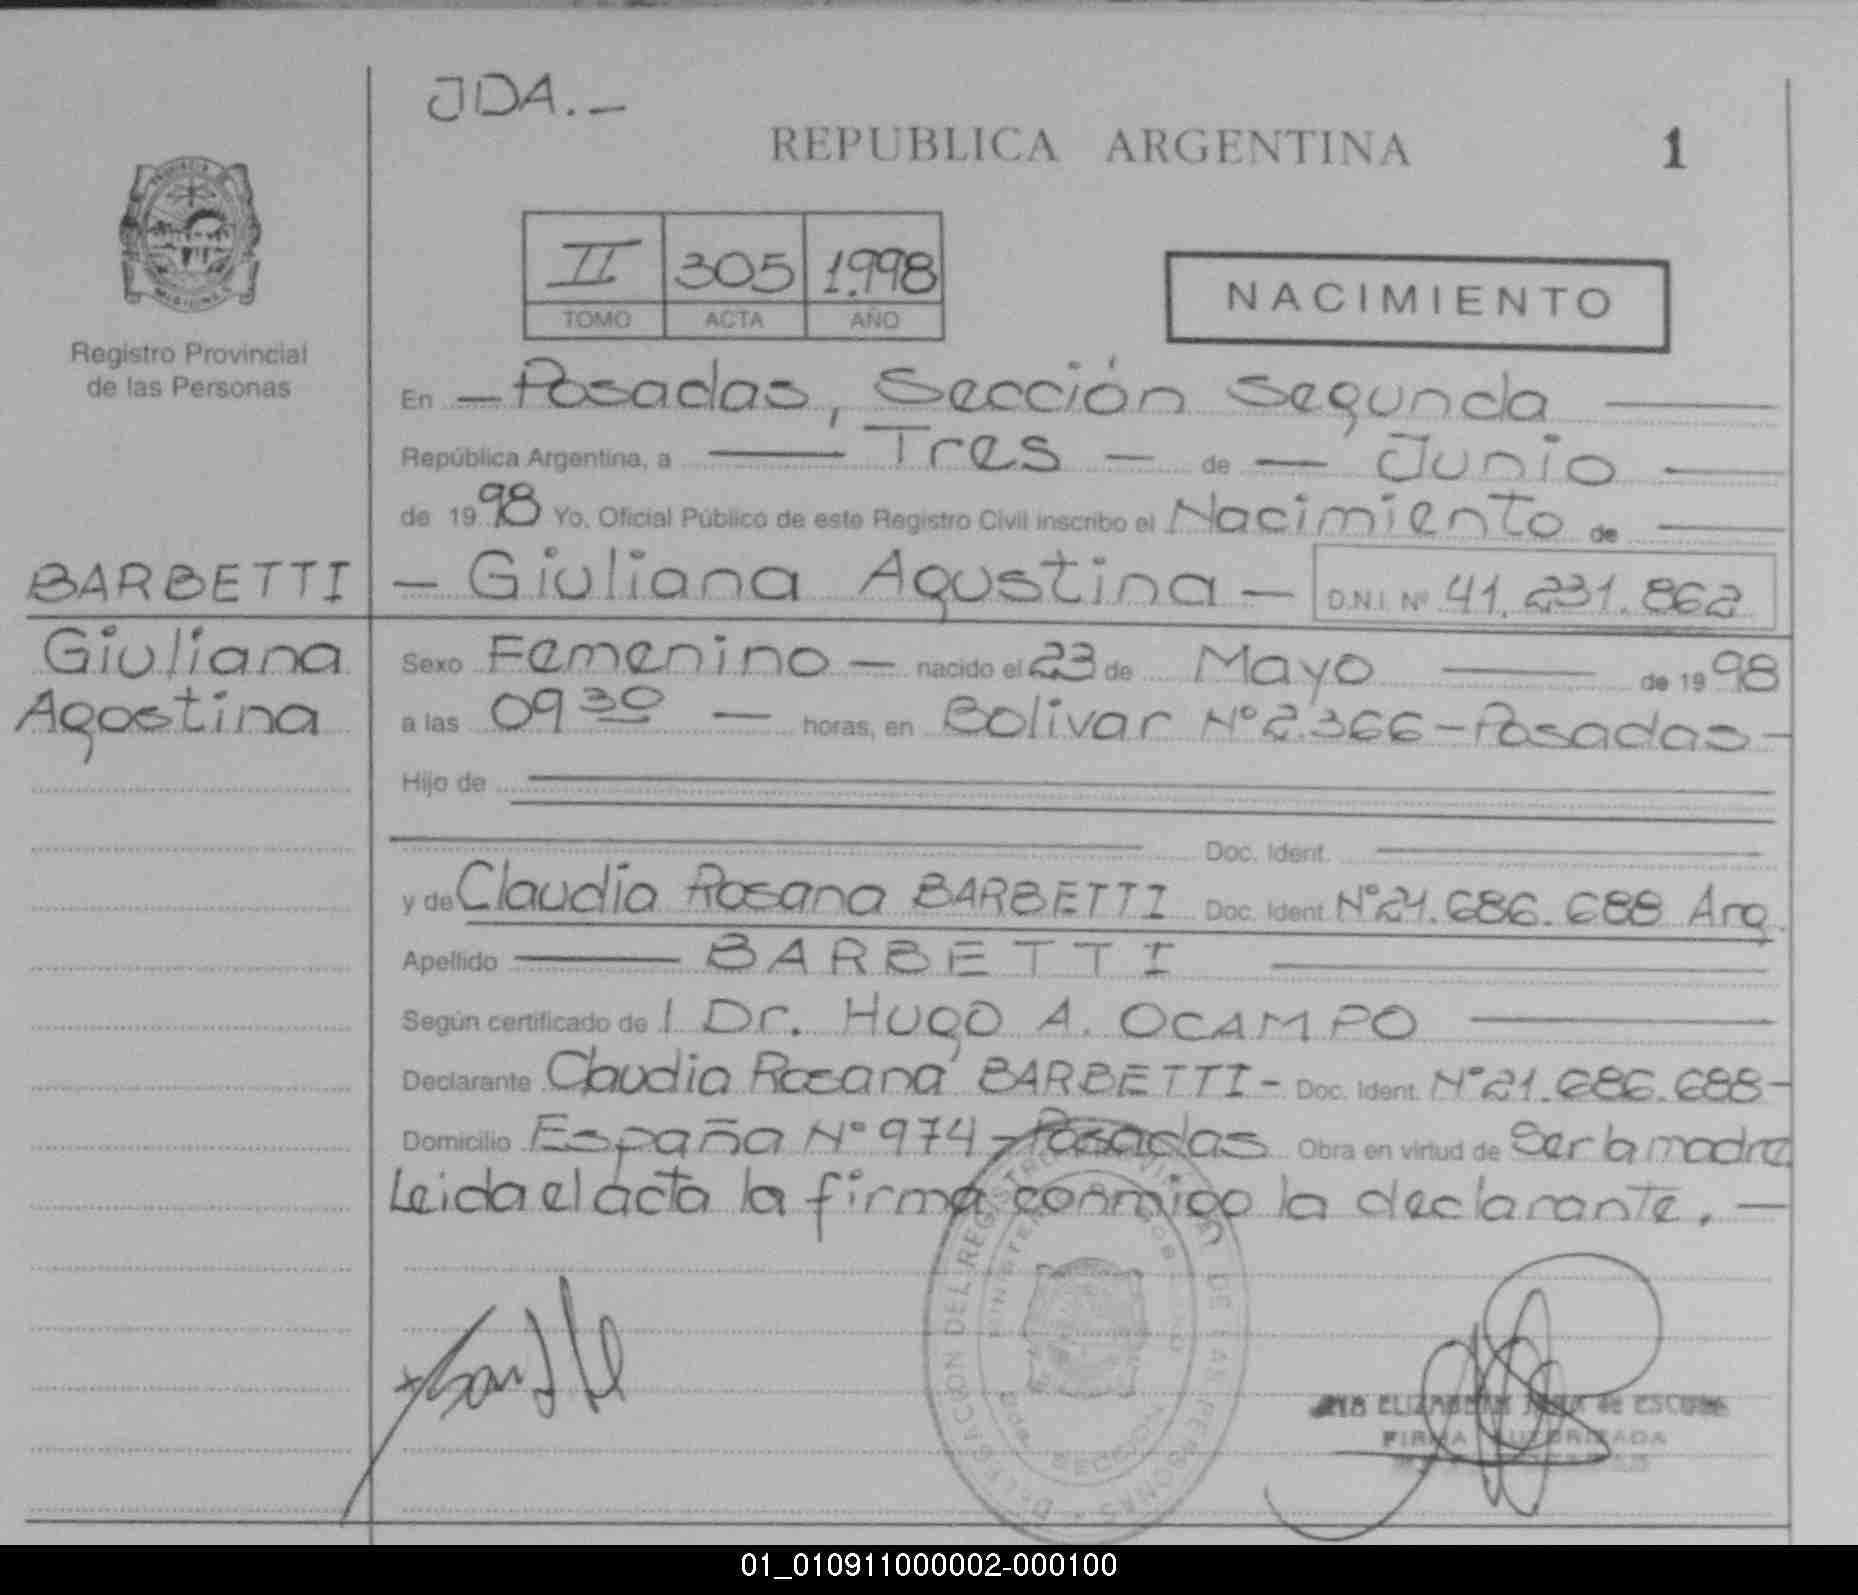 JDA.-
REPUBLICA ARGENTINA 1
II 305 1.998
TOMO ACTA AÑO
NACIMIENTO
Registro Provincial
de las Personas
En - Posadas, Sección Segunda
República Argentina, a Tres - de - Junio
de 1998 Yo, Oficial Público de este Registro Civil inscribo el Nacimiento de
BARBETTI
Giuliana
Agostina
- Giuliana Agustina - D.N.I. Nº 41.231.862
Sexo Femenino - nacido el 23 de Mayo de 1998
a las 09 30 - horas, en Bolivar Nº 2.366 - Posadas -
Hijo de
Doc. Ident.
y de Claudia Rosana BARBETTI Doc. Ident. Nº 21.686.688 Arg.
Apellido BARBETTI
Según certificado de l Dr. HUGO A. OCAMPO
Declarante Claudia Rosana BARBETTI - Doc. Ident. Nº 21.686.688 -
Domicilio España Nº 974 - Posadas Obra en virtud de Ser la madre
Leida el acta la firma conmigo la declarante. -
DELEGACION DEL REGISTRO DE LAS PERSONAS
ELIZABETH de
FIRMA AUTORIZADA
01_010911000002-000100